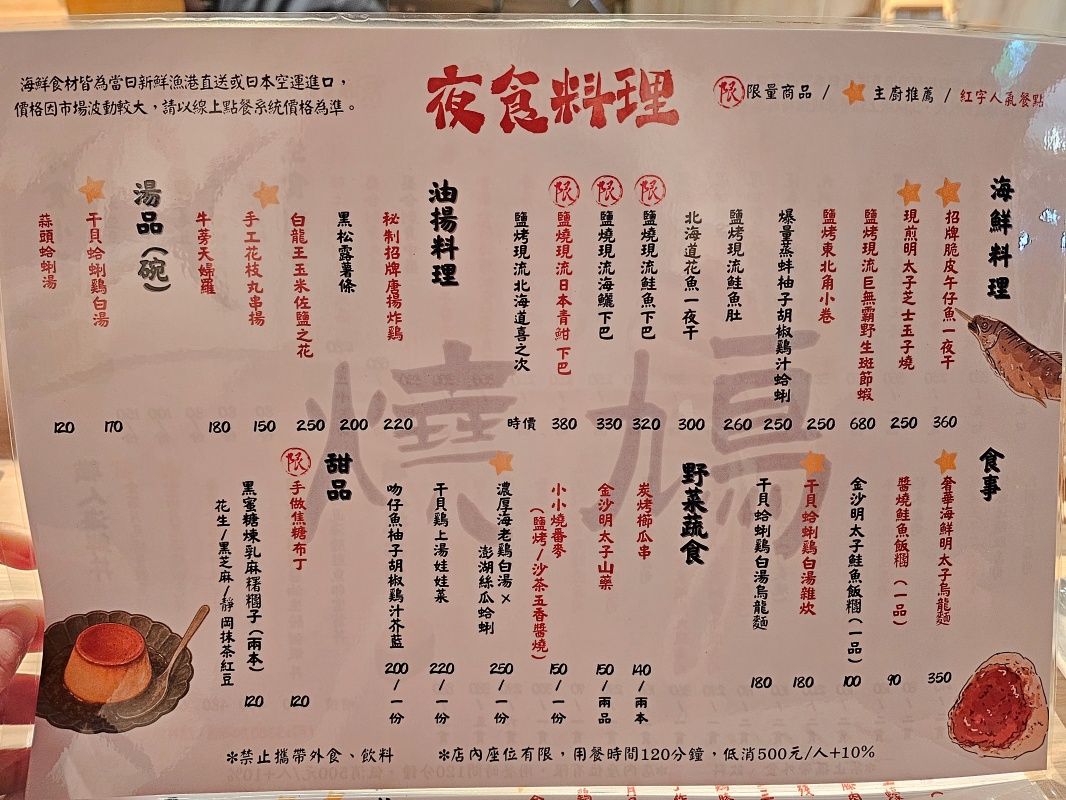 海鮮食材皆為當日新鮮漁港直送或日本空運進口，
價格因市場波動較大，請以線上點餐系統價格為準。
夜食料理
限 限量商品 / 主廚推薦 / 紅字人氣餐點
海鮮料理
招牌脆皮午仔魚一夜干 360
現煎明太子芝士玉子燒 250
鹽烤現流巨無霸野生斑節蝦 680
鹽烤東北角小卷 250
爆量蒸蚌柚子胡椒鷄汁蛤蜊 250
鹽烤現流鮭魚肚 260
北海道花魚一夜干 300
限 鹽燒現流鮭魚下巴 320
限 鹽燒現流海鱺下巴 330
限 鹽燒現流日本青魽下巴 380
鹽烤現流北海道喜之次 時價
油揚料理
秘制招牌唐揚炸鷄 220
黑松露薯條 200
白龍王玉米佐鹽之花 250
手工花枝丸串揚 150
牛蒡天婦羅 180
湯品（碗）
干貝蛤蜊鷄白湯 170
蒜頭蛤蜊湯 120
食事
奢華海鮮明太子烏龍麵 350
醬燒鮭魚飯糰（一品） 90
金沙明太子鮭魚飯糰（一品） 100
干貝蛤蜊鷄白湯雜炊 180
干貝蛤蜊鷄白湯烏龍麵 180
野菜蔬食
炭烤櫛瓜串 140/兩本
金沙明太子山藥 150/兩品
小小燒番麥
（鹽烤/沙茶五香醬燒） 150/一份
濃厚海老鷄白湯×
澎湖絲瓜蛤蜊 250/一份
干貝鷄上湯娃娃菜 220/一份
吻仔魚柚子胡椒鷄汁芥藍 200/一份
甜品
限 手做焦糖布丁 120
黑蜜糖煉乳麻糬糰子（兩本） 120
花生/黑芝麻/靜岡抹茶紅豆
燒鳥
＊禁止攜帶外食、飲料
＊店內座位有限，用餐時間120分鐘，低消500元/人+10%